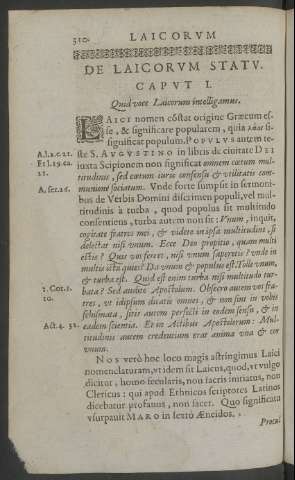 310. LAICORVM
DE LAICORVM STATV.
CAPVT I.
Quid voce Laicorum intelligamus.
LAICI nomen cōstat origine Græcum es-
se, & significare popularem, quia λαὸς si-
gnificat populum. POPVLVS autem te-
ste S. AVGVSTINO in libris de ciuitate DEI
iuxta Scipionem non significat omnem cœtum mul-
titudinis, sed cœtum iuris consensu & vtilitatis com-
munione sociatum. Vnde forte sumpsit in sermoni-
bus de Verbis Domini discrimen populi, vel mul-
titudinis à turba, quod populus sit multitudo
consentiens, turba autem non sit: Vnum, inquit,
cogitate fratres mei, & videte vtrum in ipsa multitudine, si
delectat nisi vnum. Ecce Deo propitio, quam multi
estis? Quis vos ferret, nisi vnum saperetis? vnde in
multis ista quies? Da vnum & populus est. Tolle vnum,
& turba est. Quid est enim turba nisi multitudo tur-
bata? Sed audite Apostolum. Obsecro autem vos fra-
tres, vt idipsum dicatis omnes, & non sint in vobis
schismata, sitis autem perfecti in eodem sensu, & in
eadem scientia. Et in Actibus Apostolorum: Mul-
titudinis autem credentium erat anima vna & cor
vnum.
NOS verò hoc loco magis astringimus Laici
nomenclaturam, vt idem sit Laicus, quod, vt vulgo
dicitur, homo secularis, non sacris initiatus, non
Clericus: qui apud Ethnicos scriptores Latinos
dicebatur profanus, non sacer. Quo significatu
vsurpauit MARO in sexto Æneidos.
Procul
A. l. 2. c. 21.
Et l. 19. ca.
21.
A. ser. 26.
1. Cor. 1.
10.
Act. 4. 32.